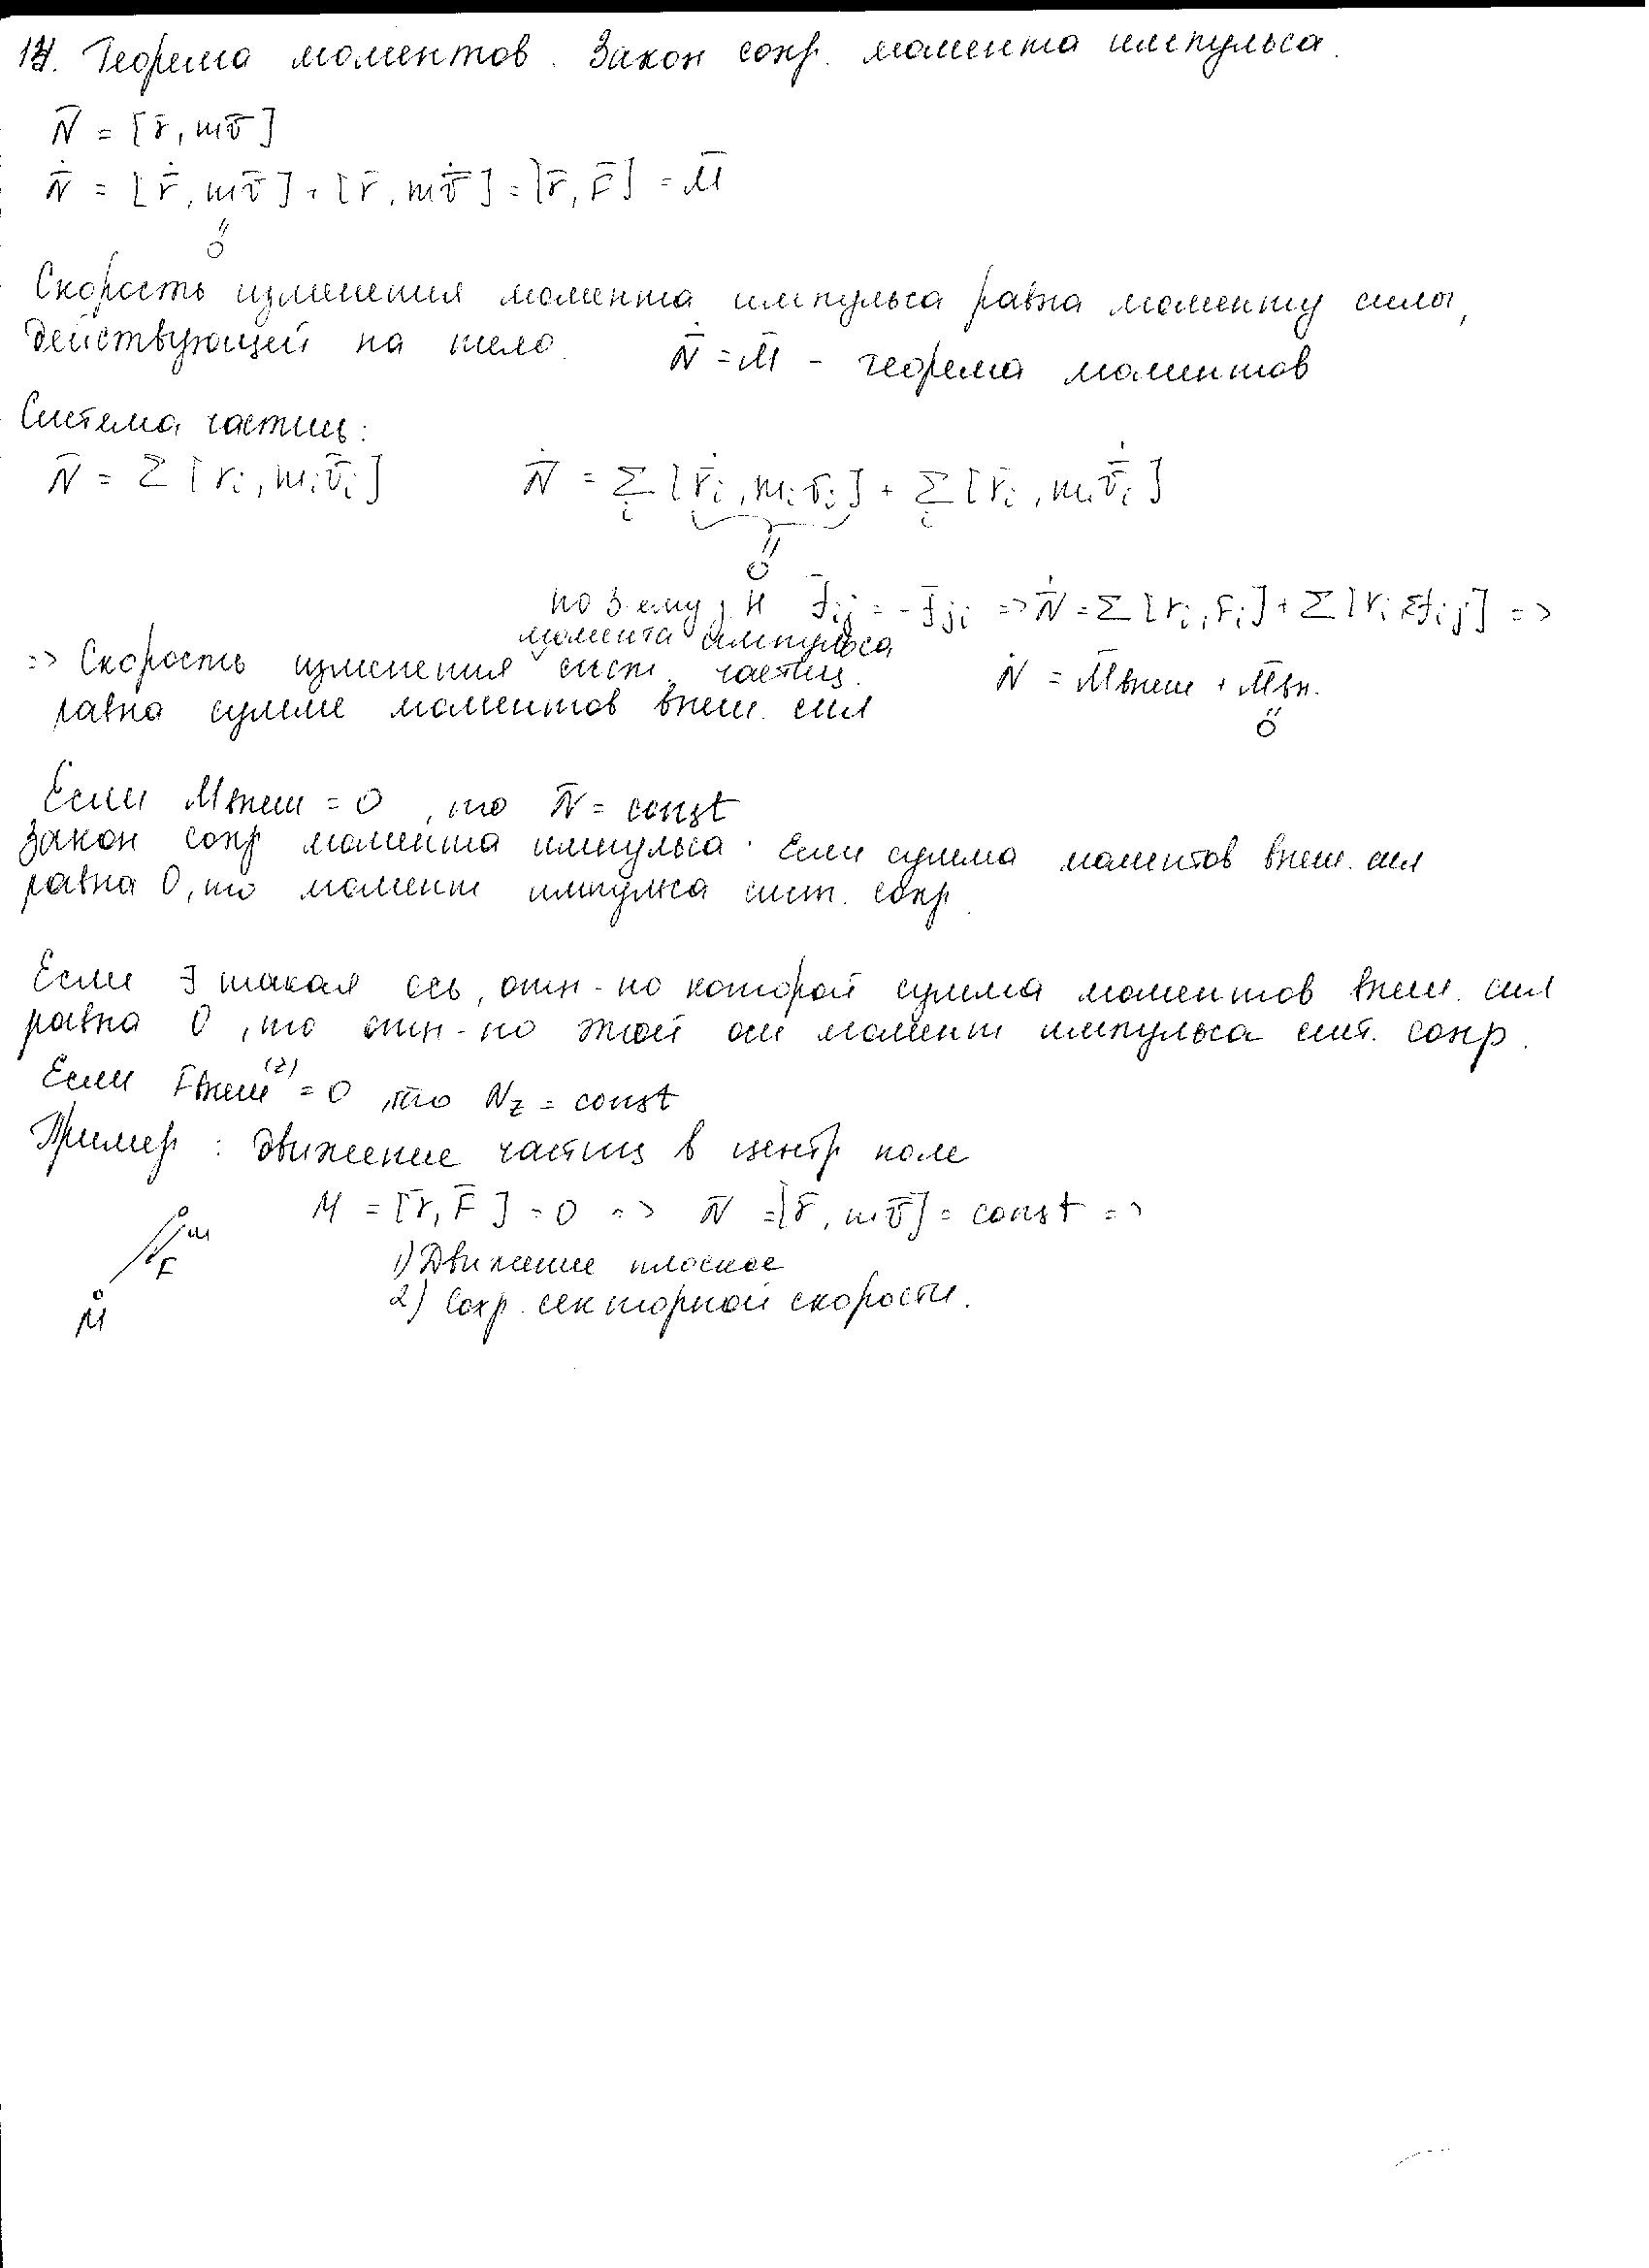 14. Теорема моментов. Закон сохр. момента импульса.
N̄ = [r̄, mv̄]
N̄̇ = [r̄̇, mv̄] + [r̄, mv̄̇] = [r̄, F̄] = M̄
0
Скорость изменения момента импульса равна моменту силы,
действующей на тело. N̄̇ = M̄ - теорема моментов
Система частиц:
N̄ = Σ [r̄i, miv̄i] N̄̇ = Σi [r̄̇i, miv̄i] + Σi [r̄i, miv̄̇i]
0
по 3-ему з. Н f̄ij = -f̄ji => N̄̇ = Σ [ri, Fi] + Σ [ri Σfij] =>
момента импульса
=> Скорость изменения сист. частиц. Ṅ = M̄внеш + M̄вн.
равна сумме моментов внеш. сил 0
Если Mвнеш = 0, то N̄ = const
Закон сохр момента импульса. Если сумма моментов внеш. сил
равна 0, то момент импульса сист. сохр.
Если ∃ такая ось, отн-но которой сумма моментов внеш. сил
равна 0, то отн-но этой оси момент импульса сист. сохр.
Если Fвнеш(z) = 0, то Nz = const
Пример: движение частиц в центр поле
M = [r̄, F̄] = 0 => N̄ = [r̄, mv̄] = const =>
m
F
M
1) Движение плоское
2) Сохр. секторной скорости.